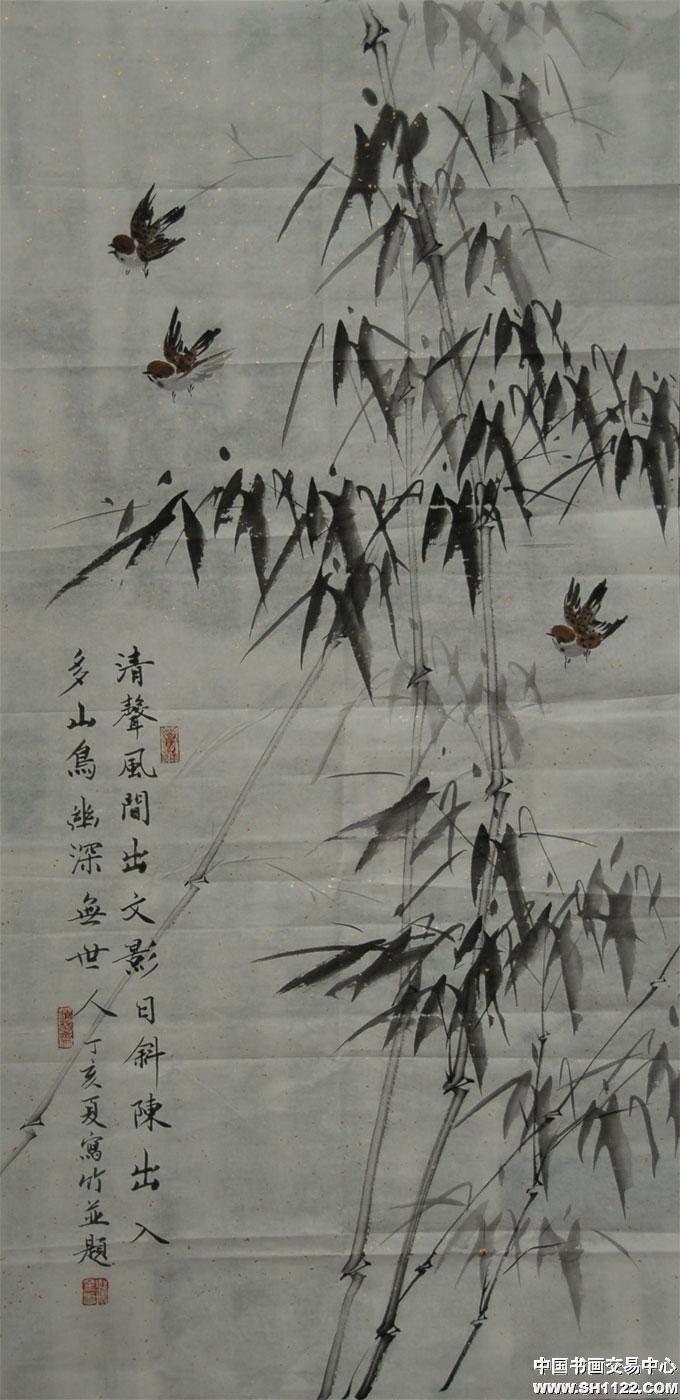 清聲風間出文影日斜陳出入
多山鳥幽深無世人丁亥夏寫竹並題
中国书画交易中心
www.SH1122.com